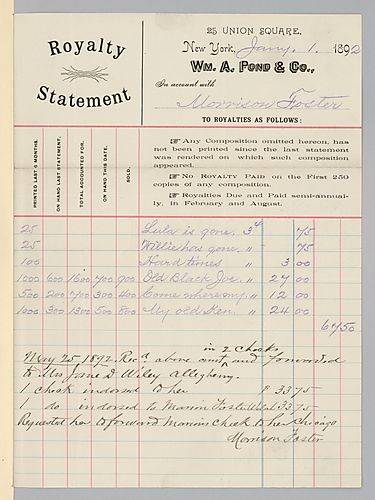 Royalty
Statement
25 UNION SQUARE,
New York, Jany. 1. 1892
WM. A. POND & CO.,
In account with
Morrison Foster
TO ROYALTIES AS FOLLOWS:
PRINTED LAST 6 MONTHS.
ON HAND LAST STATEMENT.
TOTAL ACCOUNTED FOR.
ON HAND THIS DATE.
SOLD.
☞ Any Composition omitted hereon, has
not been printed since the last statement
was rendered on which such composition
appeared.
☞ No ROYALTY PAID on the First 250
copies of any composition.
☞ Royalties Due and Paid semi-annual-
ly, in February and August.
25 Lula is gone. 3¢ 75
25 Willie has gone. " 75
100 Hard times " 3 00
1000 600 1600 700 900 Old Black Joe. " 27 00
500 200 700 300 400 Come where my. " 12 00
1000 300 1300 500 800 My old Ken. " 24 00
67 50
in 2 Checks
May 25 1892. Recd above amt and forwarded
to Mrs Jane D Wiley Allegheny.
1 check indorsed to her $ 33 75
1 do indorsed to Marion Foster Welch 33,75
Requested her to forward Marions Check to her Chicago
Morrison Foster